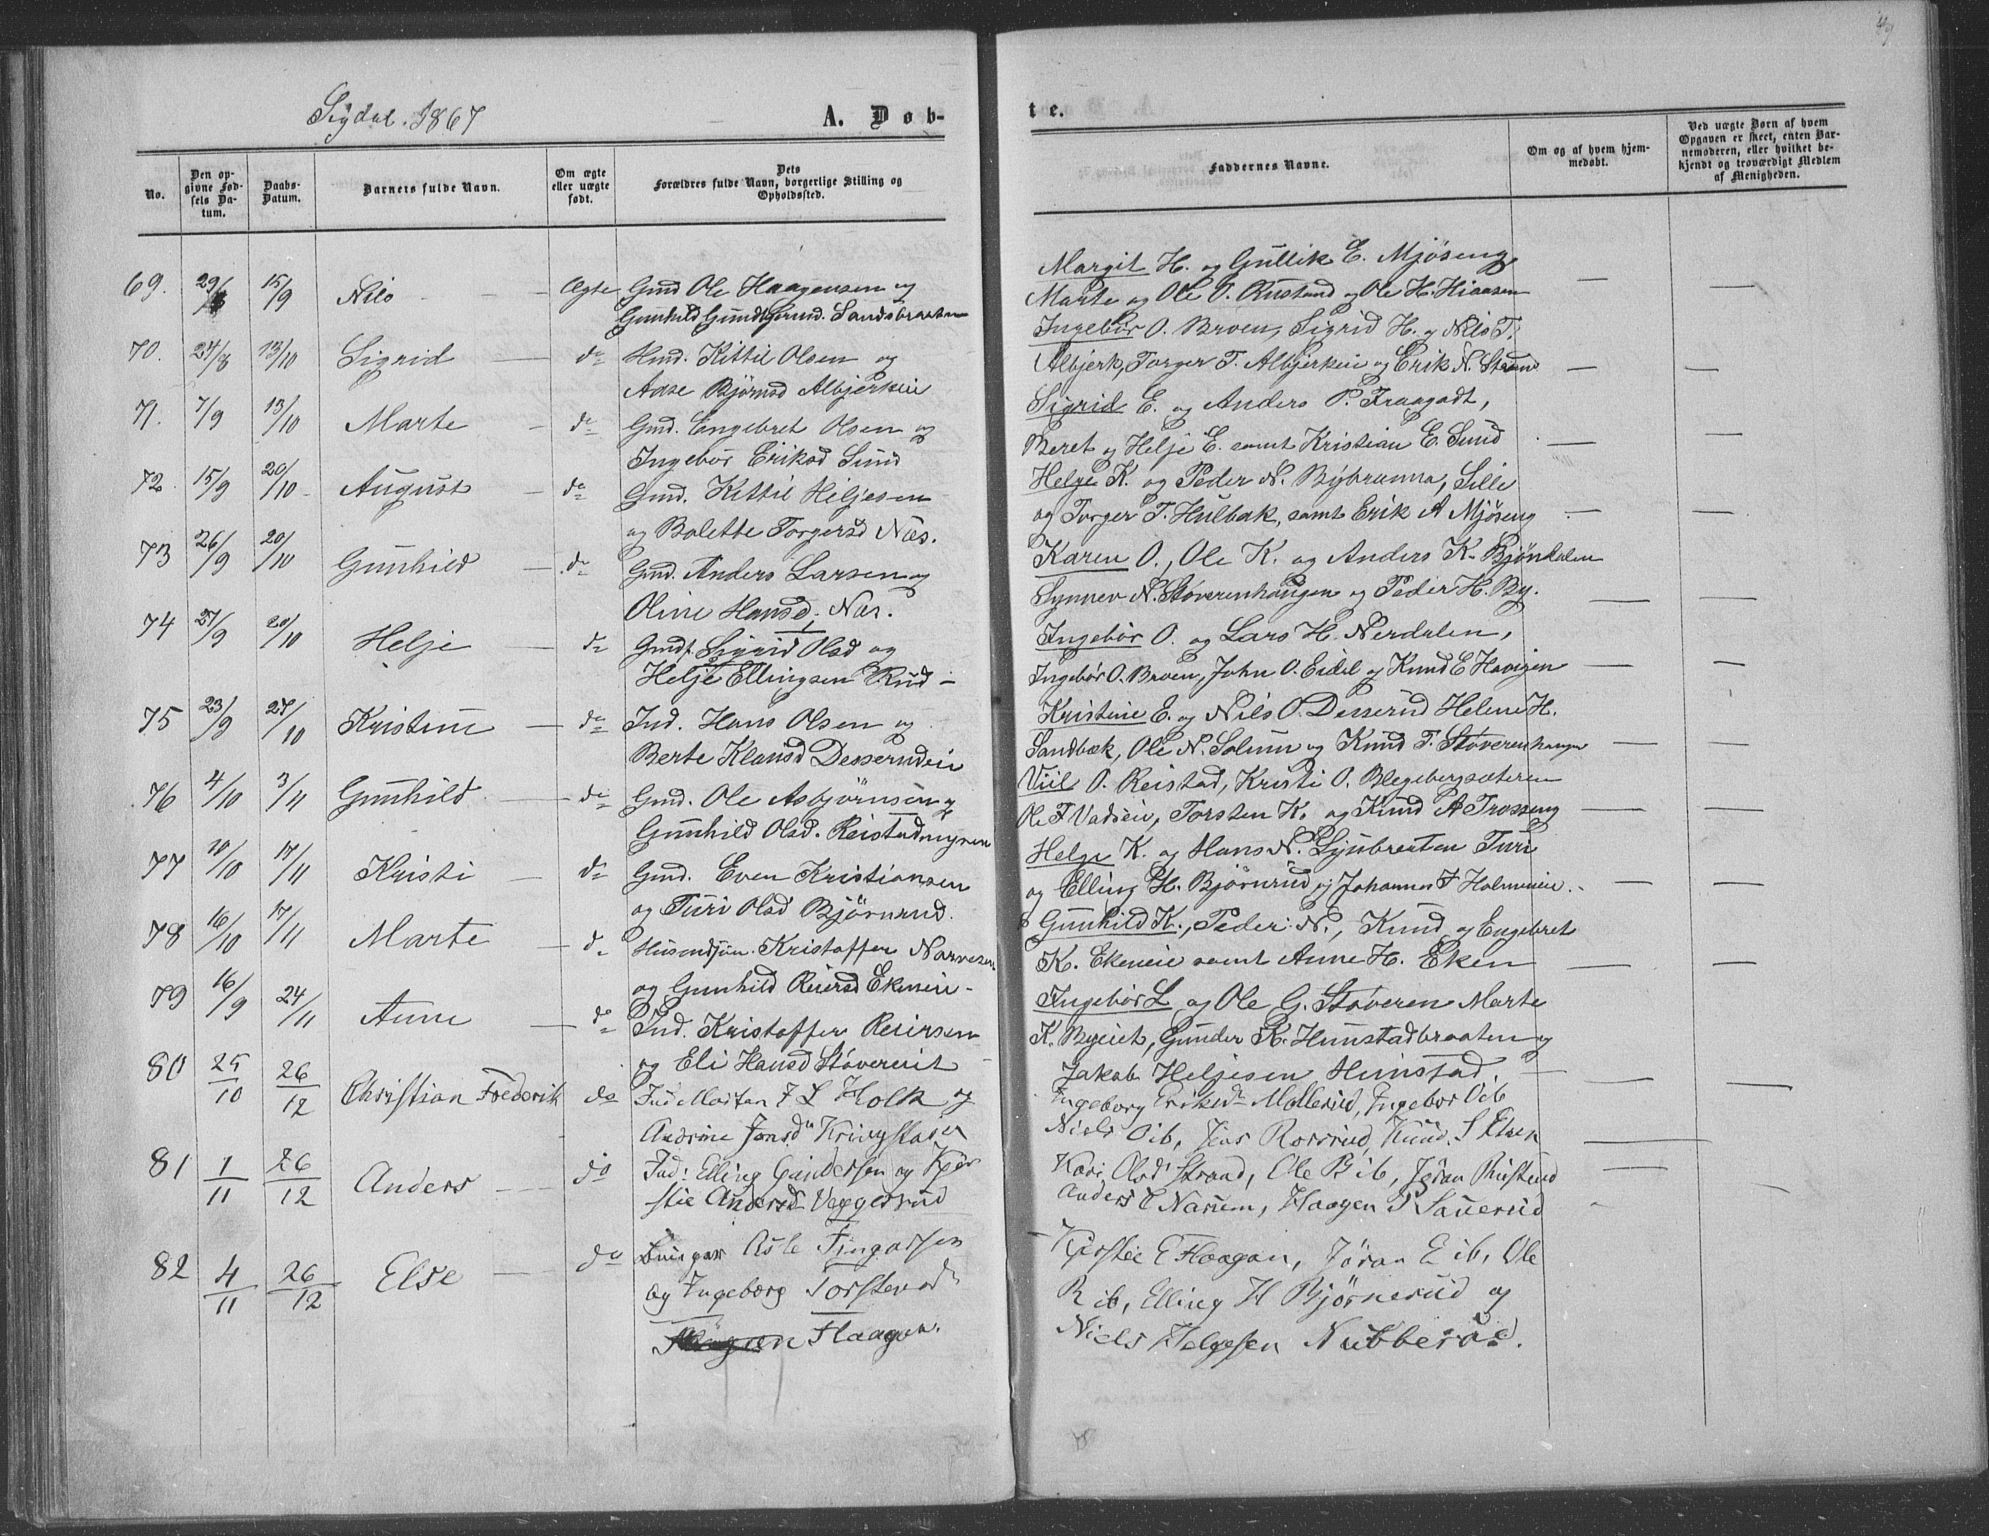 49
Sigdal. 1867
A. Døb-
te.
No.
Den op-
givne Fød-
sels Da-
tum.
Daabs-
Datum.
Barnets fulde Navn.
Om ægte
eller uægte
født.
Dets
Forældres fulde Navn, borgerlige Stilling og
Opholdssted.
Faddernes Navne.
Om og af hvem hjem-
medøbt.
Ved uægte Børn af hvem
Opgaven er skeet, enten Bar-
nemoderen, eller hvilket be-
kjendt og troværdigt Medlem
af Menigheden.
69. 29/ 15/9 Nils Ægte Gmd Ole Haagensen og
Gunhild Sandsbraaten
Margit H. og Gullik E. Mjøseng
Marte og Ole O. Rustand og Ole H. Hiaasen
70. 24/8 13/10 Sigrid do Hmd. Kittil Olsen og
Aase Bjørnsd Albjerkeie
Ingebør O. Broen, Sigrid H. og Nils T.
Albjerk, Torger T. Albjerkeie og Erik N. Strand
71. 7/9 13/10 Marte do Gmd. Engebret Olsen og
Ingebør Eriksd Sund
Sigrid E. og Anders P. Fraagodt,
Beret og Helje E. samt Kristian E. Sund
72. 15/9 20/10 August do Gmd. Kittil Heljesen
og Bolette Torgersd Næs.
Helge K. og Peder N. Bybrunna, Silli
og Torger T. Hulbak, samt Erik A Mjøseng
73 26/9 20/10 Gunhild do Gmd. Anders Larsen og
Oline Hansd, Næs.
Karen O., Ole K. og Anders K. Bjøndalen
Synnev N. Støverenhaugen og Peder H. By.
74 27/9 20/10 Helje do Gmdf. Sigrid Olsd og
Helje Ellingsen Rud
Ingebør O. og Lars H. Nerdalen,
Ingebør O. Broen, John O. Eidal og Knud E Havigen
75 23/9 27/10 Kristine do Ind. Hans Olsen og
Berte Klausd Desserudeie
Kristine E. og Nils O. Desserud Helene H.
Sandbæk, Ole N. Solum og Knud T. Støverenhaugen
76 4/10 3/11 Gunhild do Gmd. Ole Asbjørnsen og
Gunhild Olsd. Reistadmyren
Viil O. Reistad, Kristi O. Blegebergsæteren
Ole T Vadseie, Torsten K. og Knud A Trosseng
77 10/10 17/11 Kristi do Gmd. Even Kristiansen
og Turi Olsd Bjørnrud.
Helge K. og Hans N. Lyubraaten Turi
og Elling H. Bjørnrud og Johannes T Holmeneie.
78 16/10 17/11 Marte do Husmdsøn. Kristoffer Narvesen
og Gunhild Reiersd Ekeneie
Gunhild K., Peder N., Knud og Engebret
K. Ekeneie samt Anne H. Eken
79 16/9 24/11 Anne do Ind. Kristoffer Reiersen
og Eli Hansd Støvereneit
Ingebør L og Ole G. Støveren Marte
K. Byeiet, Gunder K. Hunstadbraaten og
Jakob Heljesen Hunstad.
80 25/10 26/12 Christian Frederik do Ind Morten F L Holk og
Andrine Jonsd
Ingeborg Eriksdr Mollerud, Ingebor O ib
Niels O ib, Jens Rossrud, Knud S
81 1/11 26/12 Anders do Ind: Elling Gundersen og Kjer
stie Andersd Veggesrud
Kari Olsdr Strand, Ole B ib, Jøran Rustand
Anders E Narum, Haagen P Sauerud
82 4/11 26/12 Else do Asle Fingarssen
og Ingeborg Torstensdr
Flaagan.
Kjerstie E Flaagan, Jøran E ib, Ole
R ib, Elling H Bjørnerud og
Niels Helgesen Nubberud.